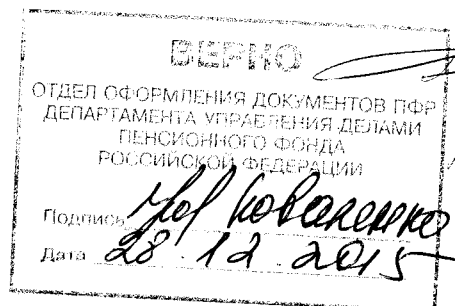 ВЕРНО
ОТДЕЛ ОФОРМЛЕНИЯ ДОКУМЕНТОВ ПФР
ДЕПАРТАМЕНТА УПРАВЛЕНИЯ ДЕЛАМИ
ПЕНСИОННОГО ФОНДА
РОССИЙСКОЙ ФЕДЕРАЦИИ
Подпись Коваленко
Дата 28.12.2015